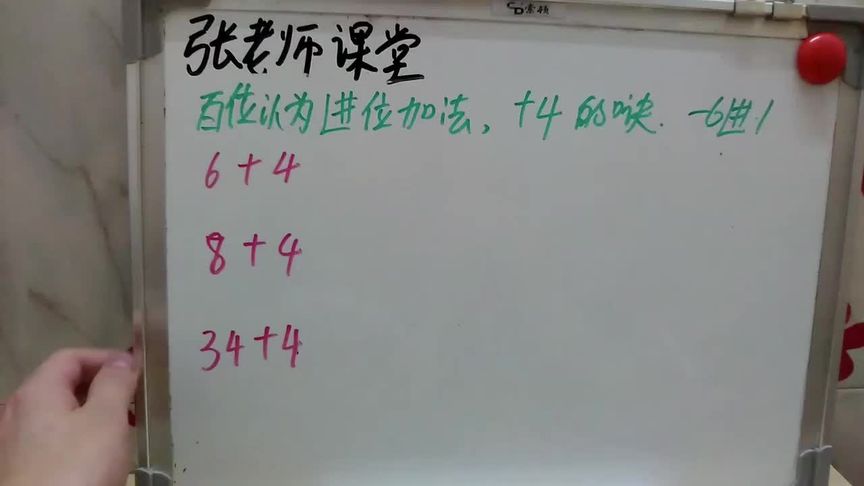 索顿
张老师课堂
百位认为进位加法,+4的口诀.-6进1
6+4
8+4
34+4